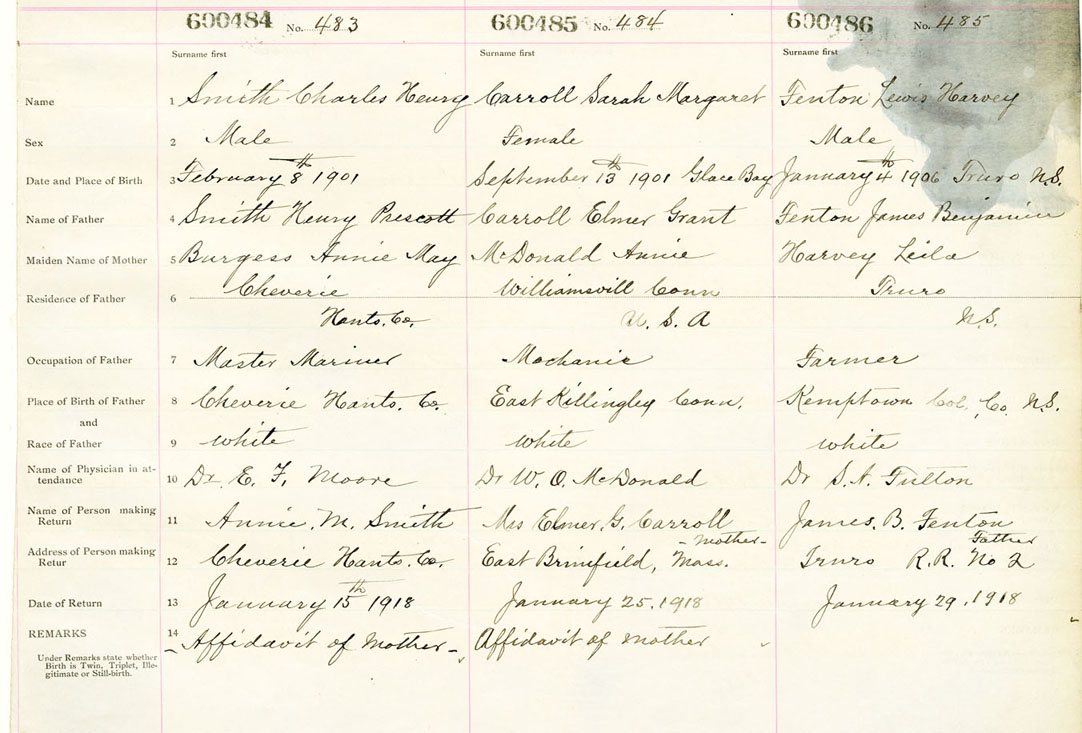 600484 No. 483 600485 No. 484 600486 No. 485
Surname first Surname first Surname first
Name 1 Smith Charles Henry Carroll Sarah Margaret Fenton Lewis Harvey
Sex 2 Male Female Male
Date and Place of Birth 3 February 8th 1901 September 13th 1901 Glace Bay January 4th 1906 Truro N.S.
Name of Father 4 Smith Henry Prescott Carroll Elmer Grant Fenton James Benjamin
Maiden Name of Mother 5 Burgess Annie May McDonald Annie Harvey Leila
Residence of Father 6 Cheverie Williamsvill Conn Truro
Hants. Co. U. S. A N.S.
Occupation of Father 7 Master Mariner Mechanic Farmer
Place of Birth of Father 8 Cheverie Hants. Co. East Killingley Conn. Kemptown Col. Co. N.S.
and
Race of Father 9 white white white
Name of Physician in at-
tendance 10 Dr. E. F. Moore Dr W. O. McDonald Dr S. A. Fulton
Name of Person making
Return 11 Annie. M. Smith Mrs Elmer. G. Carroll James. B. Fenton
- mother - Father
Address of Person making
Retur 12 Cheverie Hants. Co. East Brimfield, Mass. Truro R.R. No 2
Date of Return 13 January 15th 1918 January 25. 1918 January 29. 1918
REMARKS 14 - Affidavit of Mother - Affidavit of mother
Under Remarks state whether
Birth is Twin, Triplet, Ille-
gitimate or Still-birth.